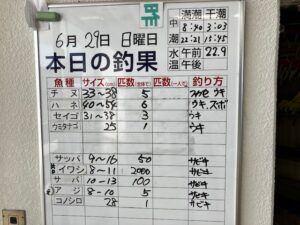 昨
満潮 干潮
中 8:40 3:03
潮 22:21 15:45
水温 午前 22.9
午後
6月29日 日曜日
本日の釣果
魚種 サイズ(cm) 匹数(全体で) 匹数(一人で) 釣り方
チヌ 33〜38 5 ウキ
ハネ 40〜54 6 ウキ、ズボ
セイゴ 31〜38 3 ウキ
ウミタナゴ 25 1 ウキ
サッパ 9〜16 50 サビキ
イワシ 8〜11 2000 サビキ
サバ 10〜13 100 サビキ
アジ 8〜10 5 サビキ
コノシロ 28 1 サビキ